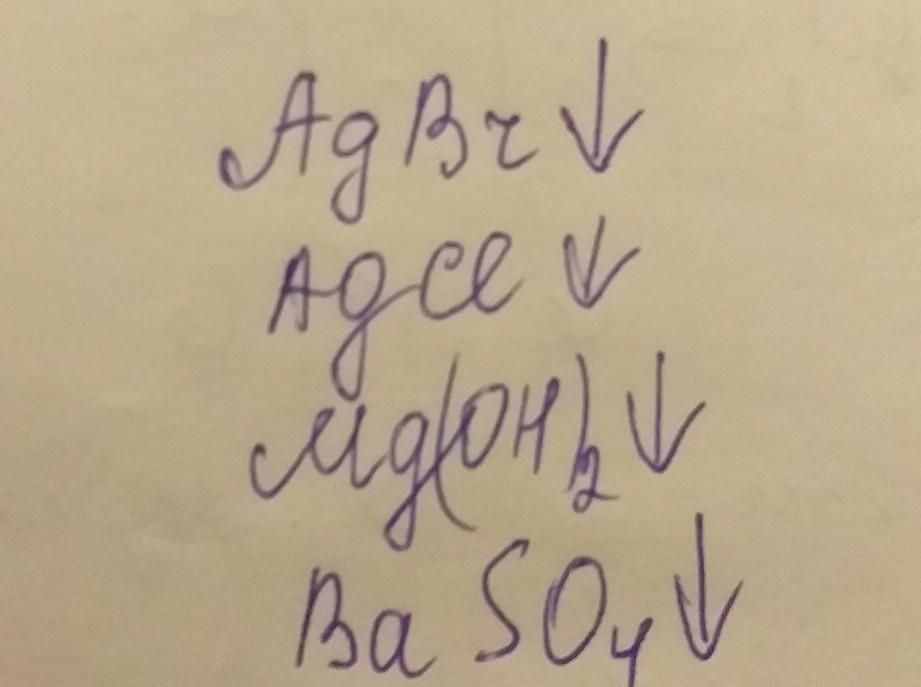 AgBr↓
AgCl↓
Mg(OH)₂↓
BaSO₄↓